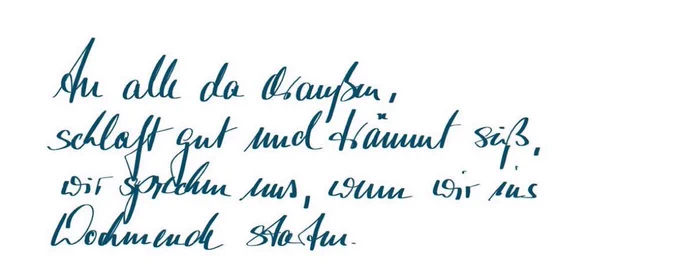 An alle da draußen,
schlaft gut und träumt süß,
wir sprechen uns, wenn wir ins
Wochenende starten.